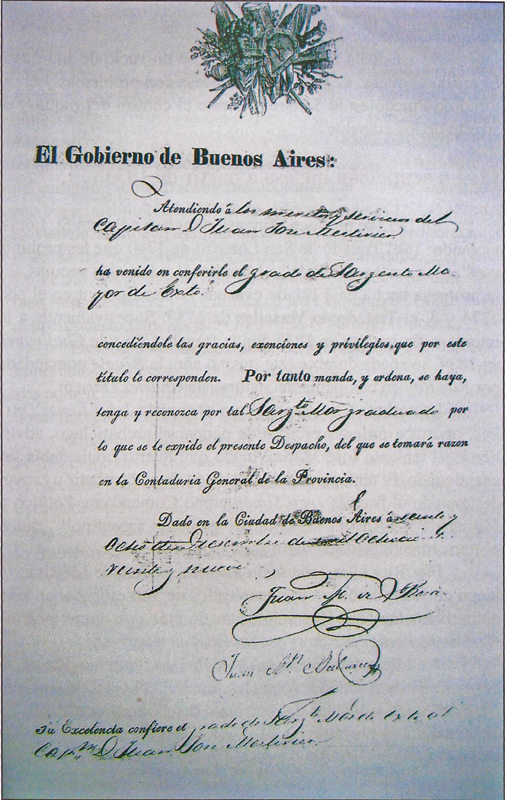 El Gobierno de Buenos Aires:
Atendiendo á los meritos y servicios del
Capitan D. Juan José Mestivier
ha venido en conferirle el grado de Sargento Ma
yor de Exto.
concediéndole las gracias, exenciones y privilegios, que por este
título le corresponden. Por tanto manda, y ordena, se haya,
tenga y reconozca por tal Sargto. Mor. graduado por
lo que se le expide el presente Despacho, del que se tomará razon
en la Contaduria General de la Provincia.
Dado en la Ciudad de Buenos Aires á veinte y
Ocho de Diciembre de mil Ochocien.
veinte y nueve
Juan M. de Rosas
Juan Rn. Balcarce
Su Excelencia confiere el grado de Sargto. Mor. de Exto. al
Capn. D. Juan José Mestivier